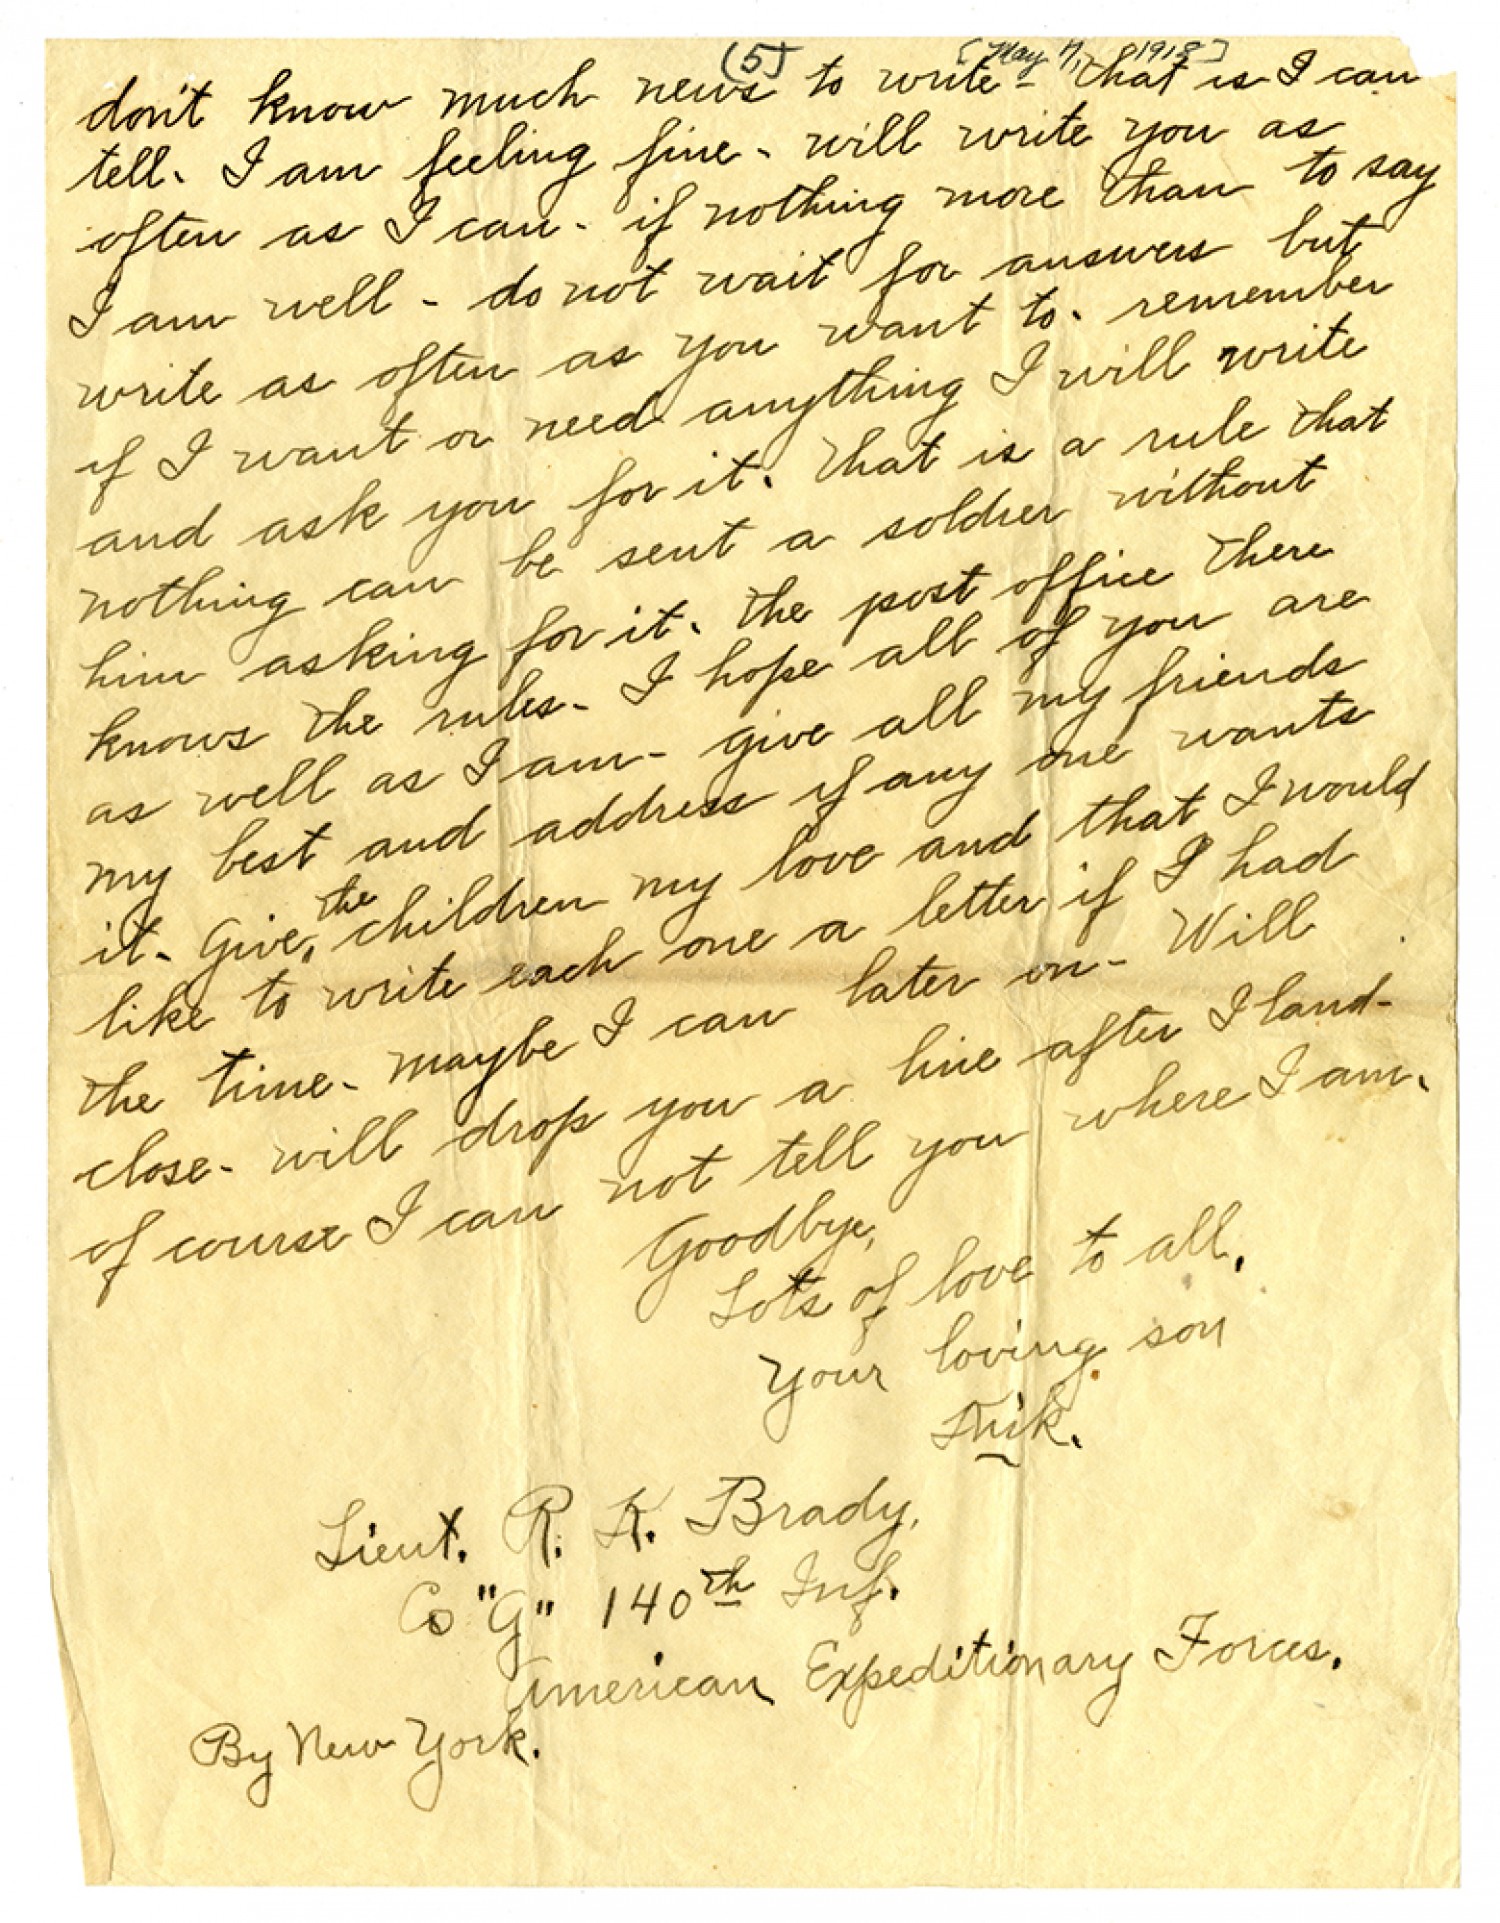 (5) [May 7, 1918]
don't know much news to write - that is I can
tell. I am feeling fine - will write you as
often as I can - if nothing more than to say
I am well - do not wait for answers but
write as often as you want to. remember
if I want or need anything I will write
and ask you for it. that is a rule that
nothing can be sent a soldier without
him asking for it. the post office there
knows the rules - I hope all of you are
as well as I am - give all my friends
my best and address if any one wants
it - Give the children my love and that I would
like to write each one a letter if I had
the time - maybe I can later on - Will
close - will drop you a line after I land -
of course I can not tell you where I am.
Goodbye,
Lots of love to all.
Your loving son
Lieut. R. K. Brady,
Co "G" 140th Inf.
American Expeditionary Forces.
By New York.